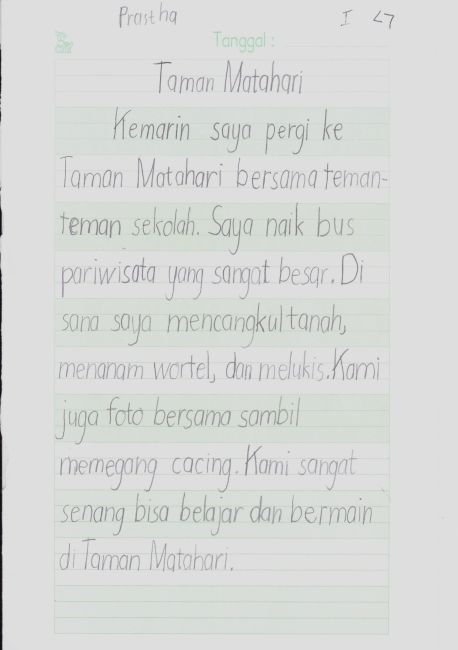 Prastha
Tanggal :
Taman Matahari
Kemarin saya pergi ke
Taman Matahari bersama teman-
teman sekolah. Saya naik bus
pariwisata yang sangat besar. Di
sana saya mencangkul tanah,
menanam wortel, dan melukis. Kami
juga foto bersama sambil
memegang cacing. Kami sangat
senang bisa belajar dan bermain
di Taman Matahari.